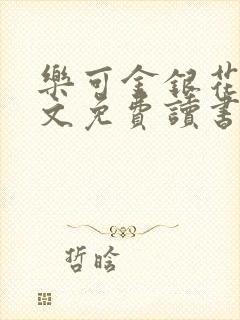 樂可金銀花
文免費讀書
哲晗